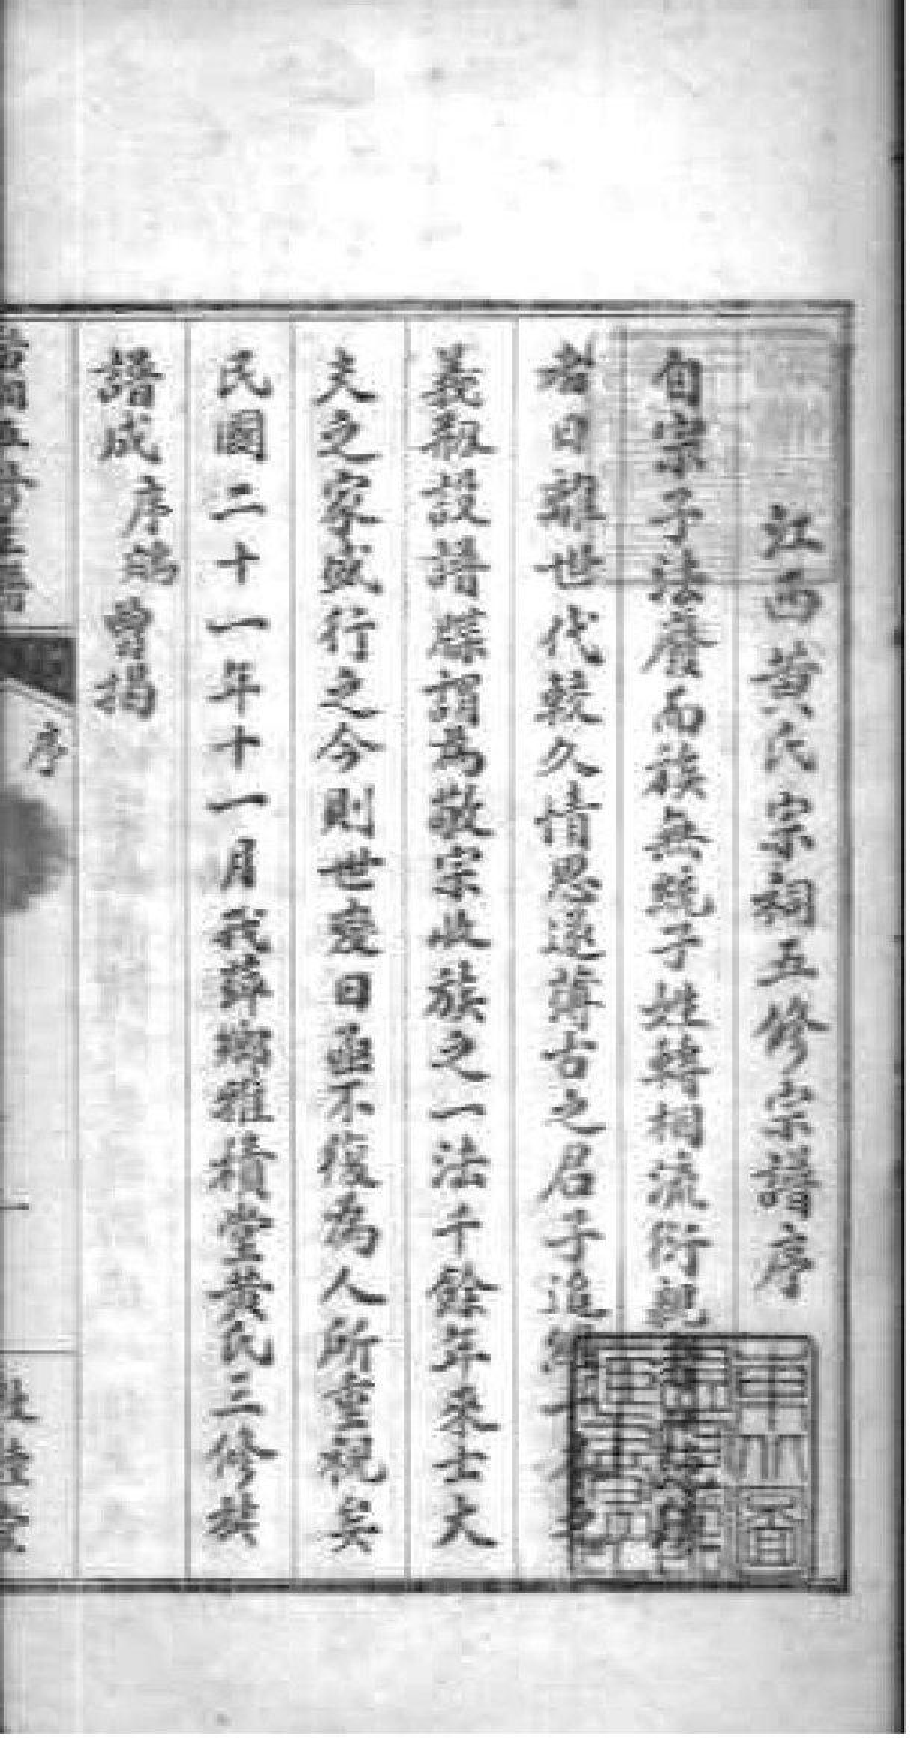 江西黃氏宗祠五修宗譜序
自宗子法廢而族無統子姓轉相流衍親
者日離世代較久情思遂薄古之君子追
義翔設譜牒謂爲敬宗收族之一法千餘年來士大
夫之家咸行之今則世變日亟不復為人所重視矣
民國二十一年十一月我薛瑯雅積堂黃氏三修族
譜成序鵷曾揭
序
一